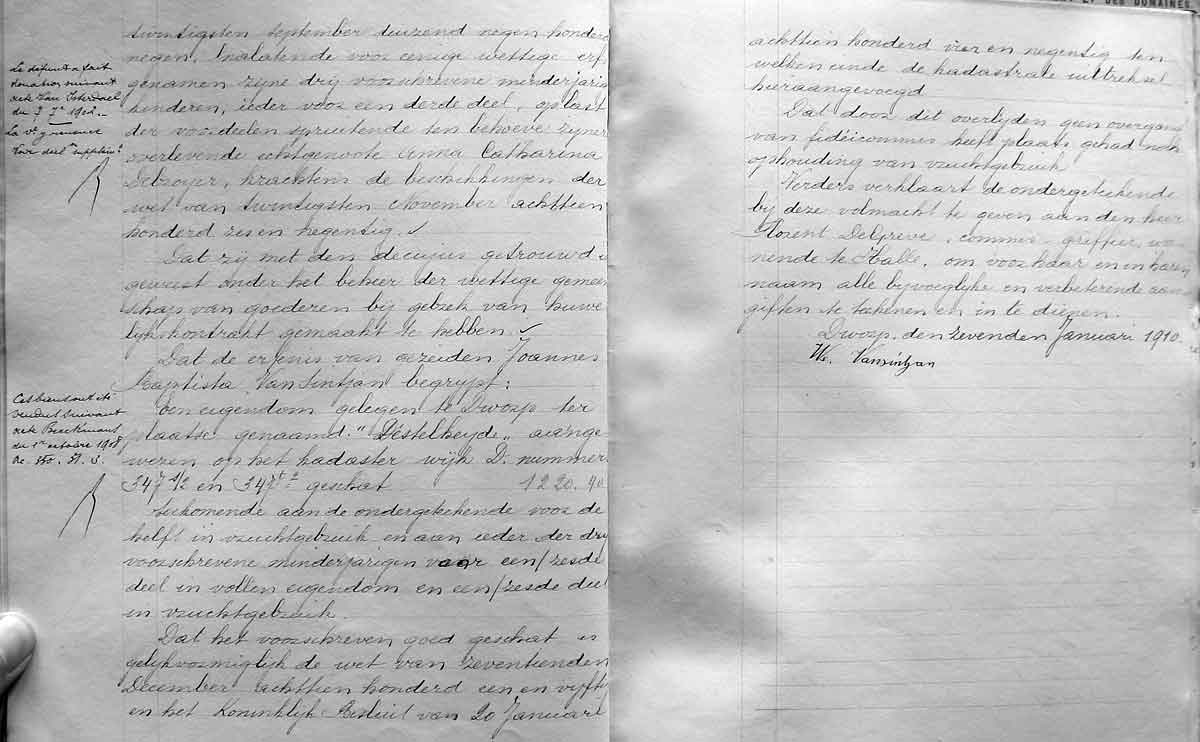 ET DES DOMAINES
twintigsten september duizend negen honderd
negen, nalatende voor eenige wettige erf
genamen zijne drij voorschrevene minderjarige
kinderen, ieder voor een derde deel, op last
der voordeelen spruitende ten behoeve zijner
overlevende echtgenoote Anna Catharina
Debroyer, krachtens de beschikkingen der
wet van twintigsten November achttien
honderd zes en negentig. ✓
Dat zij met den decujus getrouwd is
geweest onder het beheer der wettige gemeen
schap van goederen bij gebrek van huwe
lijkskontrakt gemaakt te hebben. ✓
Dat de erfenis van gezeiden Joannes
Baptista Vansintjan begrijpt:
Een eigendom gelegen te Dworp ter
plaatse genaamd "Destelheyde" aange
wezen op het kadaster wijk D. nummer
347 1/2 en 347 geschat 1220.40
toekomende aan de ondergeteekende voor de
helft in vruchtgebruik en aan ieder der drij
voorschrevene minderjarigen voor een/zesde
deel in vollen eigendom en een/zesde deel
in vruchtgebruik.
Dat het voorschreven goed geschat is
gelijkvormiglijk de wet van zeventienden
December achttien honderd een en vijftig
en het Koninklijk Besluit van 20 Januari
Le défunt a fait
donation suivant
acte Van
du 7 1902
La Ve
pour decl. supplre
Ces biens ont été
vendus suivant
acte Beeckmans
du 1er octobre 1918
Re. 350.
achttien honderd vier en negentig ten
welken einde de kadastrale uittreksel
hieraangevoegd
Dat door dit overlijden geen overgang
van fideicommis heeft plaats gehad noch
ophouding van vruchtgebruik
Verders verklaart de ondergeteekende
bij deze volmacht te geven aan den heer
Florent DeGreve, commis-greffier, wo
nende te Halle, om voor haar en in haren
naam alle bijvoeglijke en verbeterende aan
giften te teekenen en in te dienen.
Dworp, den zevenden Januari 1910.
We. Vansintjan